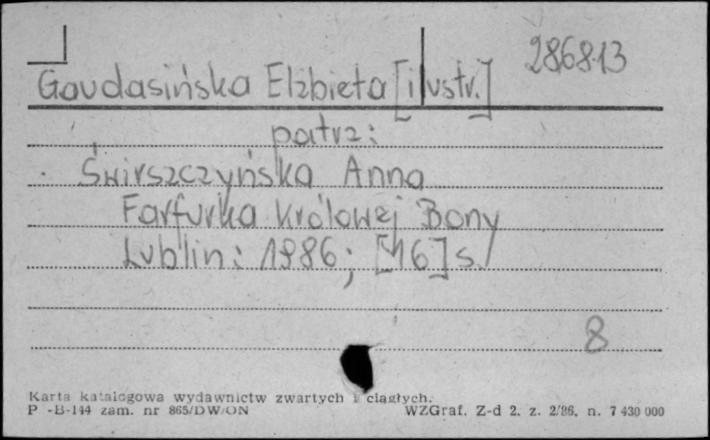 286813
Gaudasińska Elżbieta [ilustr.]
patrz:
Świrszczyńska Anna
Farfurka królowej Bony
Lublin: 1986; [16] s.
8
Karta katalogowa wydawnictw zwartych i ciągłych.
P-B-144 zam. nr 865/DW/ON WZGraf. Z-d 2. z. 2/86. n. 7 430 000